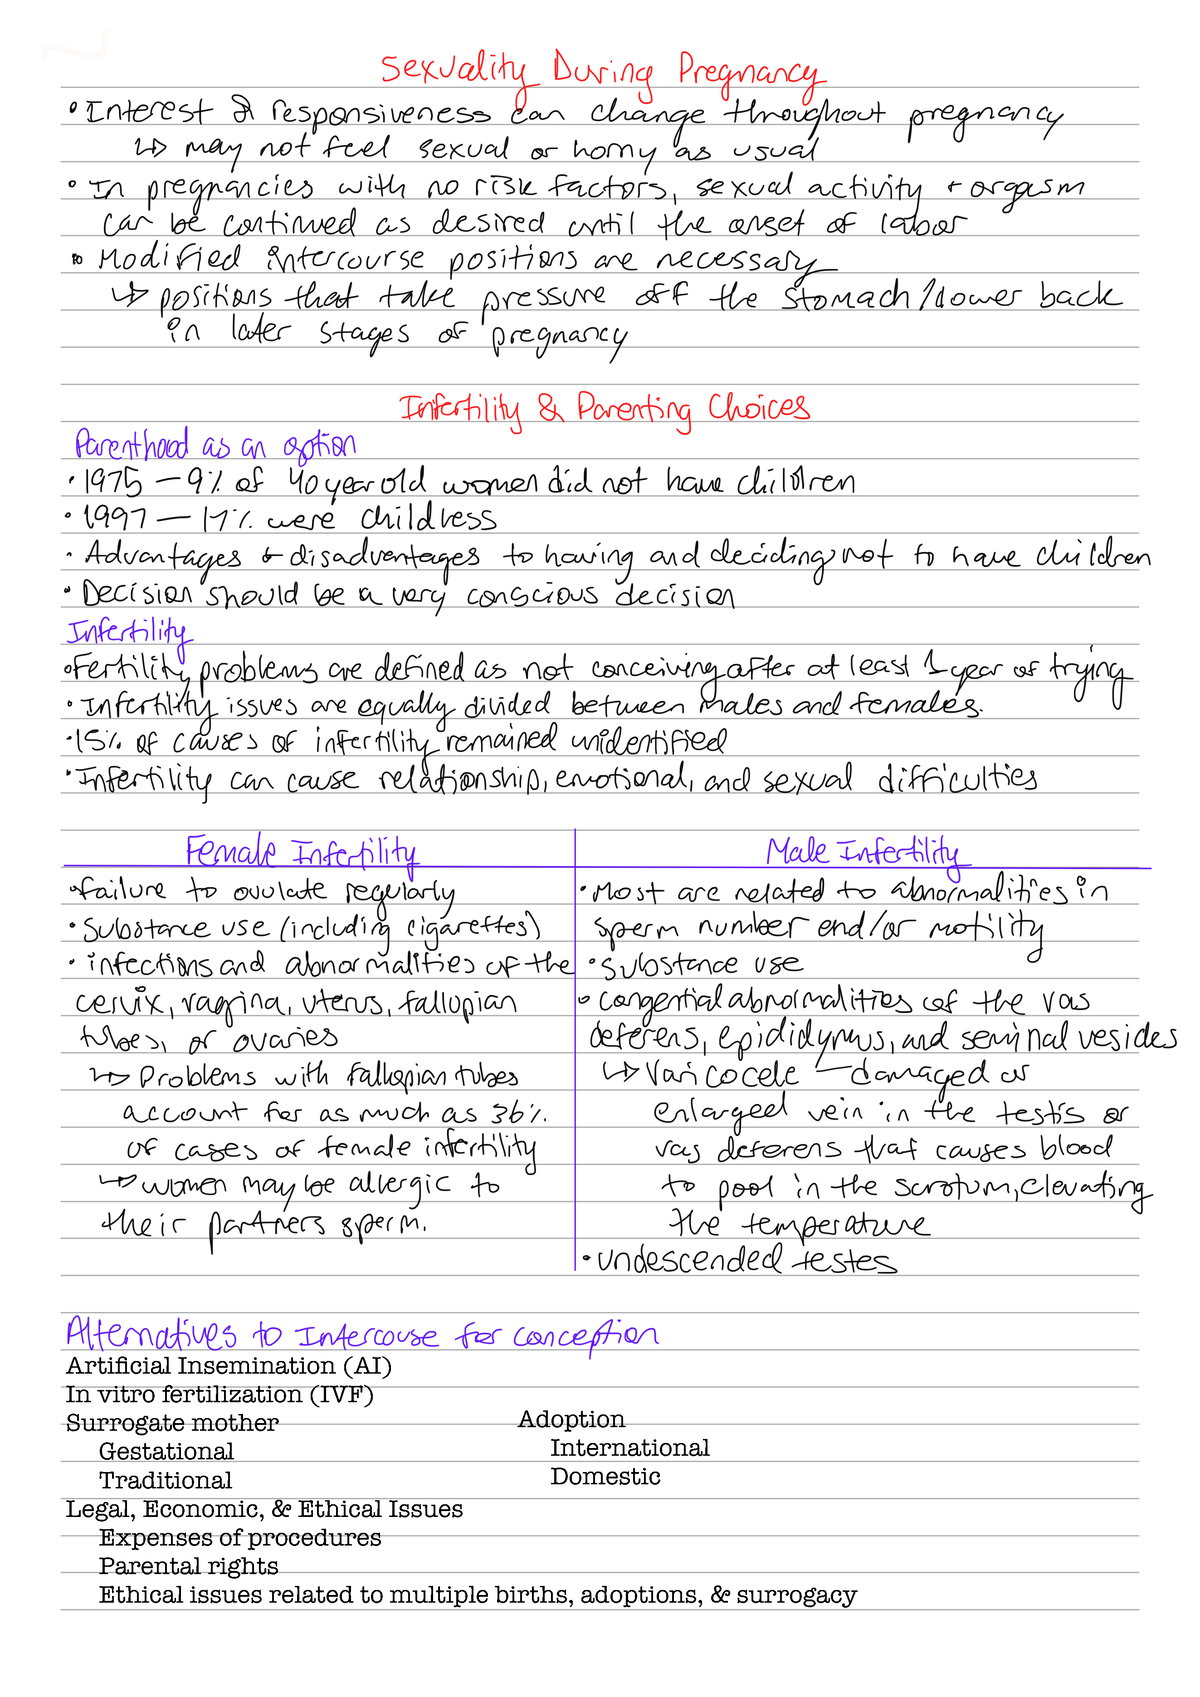 Sexuality During Pregnancy
• Interest & responsiveness can change throughout pregnancy
↳ may not feel sexual or horny as usual
• In pregnancies with no risk factors, sexual activity + orgasm
can be continued as desired until the onset of labor
• Modified intercourse positions are necessary
↳ positions that take pressure off the stomach/lower back
in later stages of pregnancy
Infertility & Parenting Choices
Parenthood as an option
• 1975 — 9% of 40 year old women did not have children
• 1997 — 17% were childless
• Advantages & disadvantages to having and deciding not to have children
• Decision should be a very conscious decision
Infertility
• Fertility problems are defined as not conceiving after at least 1 year of trying
• Infertility issues are equally divided between males and females.
• 15% of causes of infertility remained unidentified
• Infertility can cause relationship, emotional, and sexual difficulties
Female Infertility
• failure to ovulate regularly
• Substance use (including cigarettes)
• infections and abnormalities of the
cervix, vagina, uterus, fallopian
tubes, or ovaries
↳ Problems with fallopian tubes
account for as much as 36%
of cases of female infertility
↳ women may be allergic to
their partners sperm.
Male Infertility
• Most are related to abnormalities in
sperm number and/or motility
• Substance use
• congential abnormalities of the vas
deferens, epididymus, and seminal vesicles
↳ Varicocele — damaged or
enlarged vein in the testis or
vas deferens that causes blood
to pool in the scrotum, elevating
the temperature
• undescended testes
Alternatives to Intercouse for conception
Artificial Insemination (AI)
In vitro fertilization (IVF)
Surrogate mother
Gestational
Traditional
Adoption
International
Domestic
Legal, Economic, & Ethical Issues
Expenses of procedures
Parental rights
Ethical issues related to multiple births, adoptions, & surrogacy